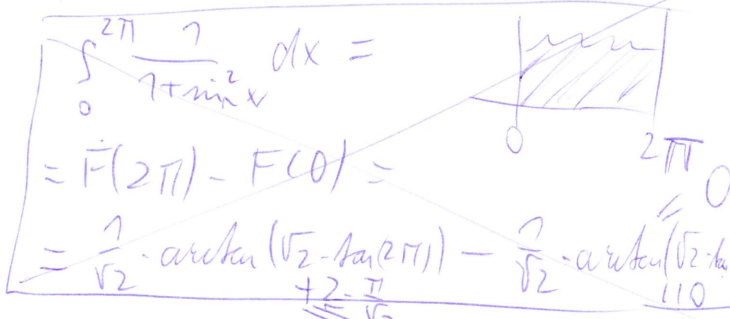 ∫₀^{2π} 1/(1+sin²x) dx =
0 2π
= F(2π) - F(0) =
= 0
= 1/√2 · arctan(√2 · tan(2π)) - 1/√2 · arctan(√2 · tan
+2 · π/√2
= 0